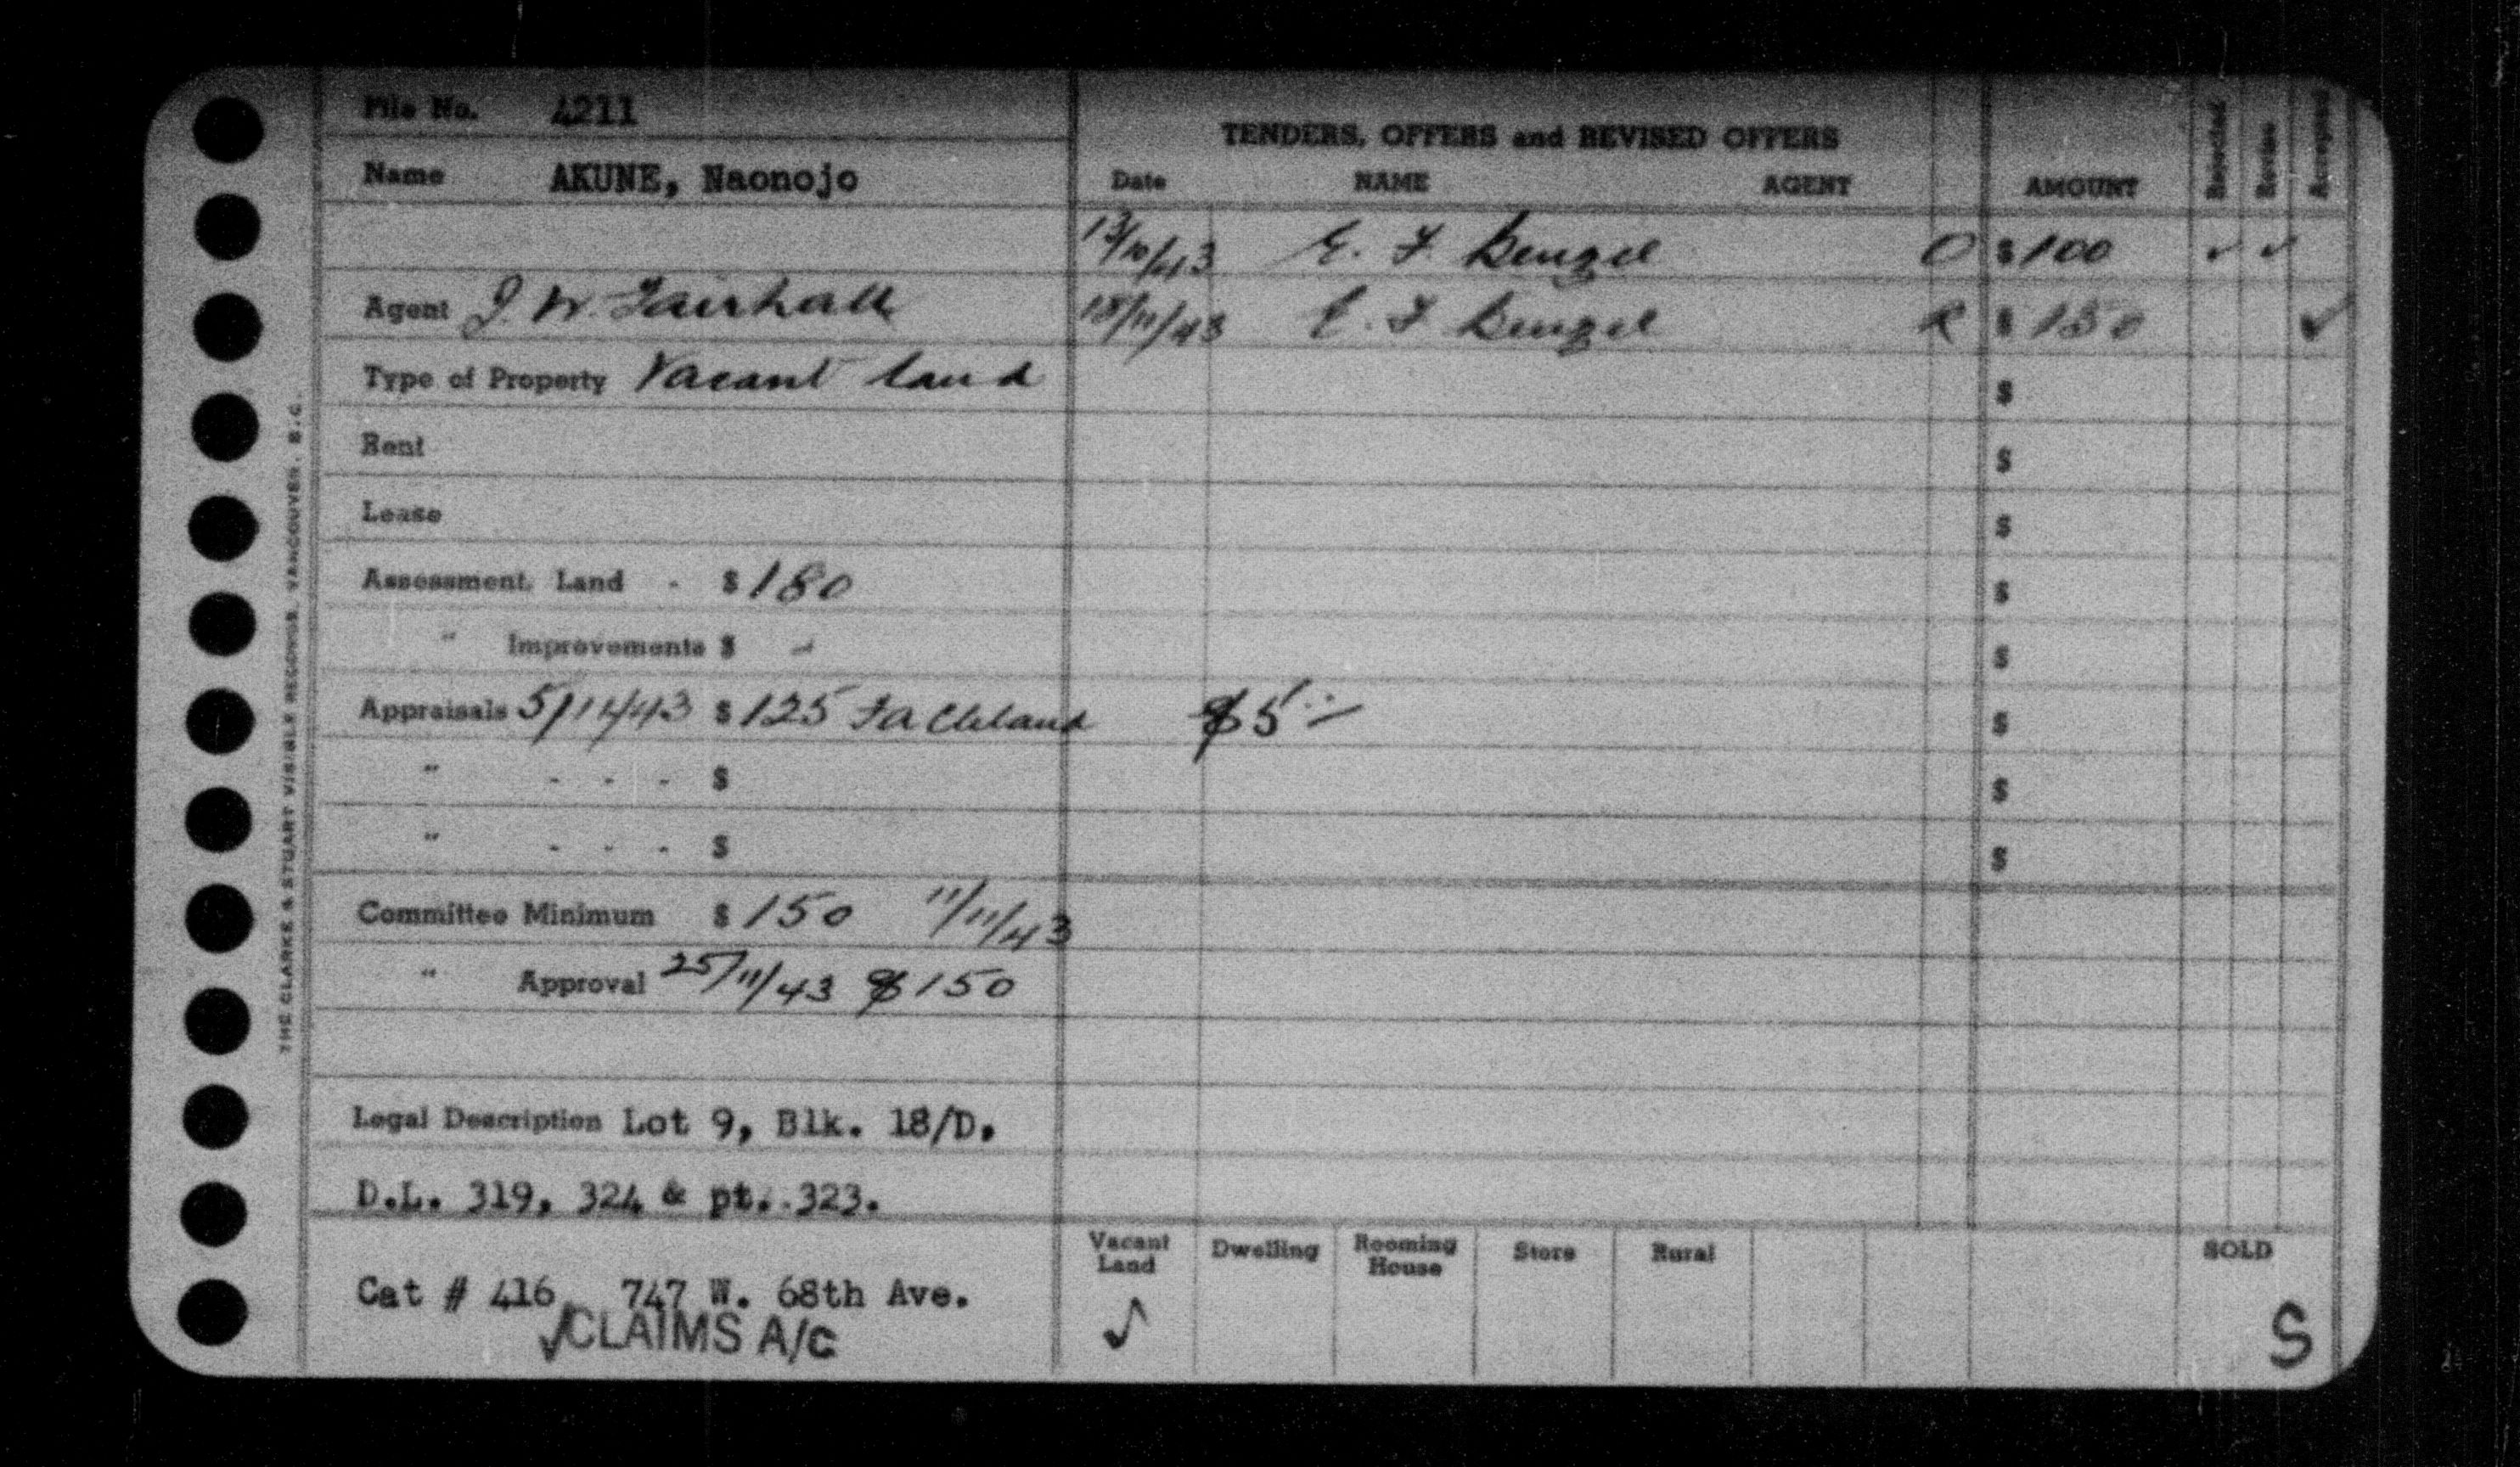 File No. 4211
Name AKUNE, Naonojo
Agent J. W. Fairhall
Type of Property Vacant land
Rent
Lease
Assessment, Land - $ 180
" Improvements $ -
Appraisals 5/11/43 $ 125 F A Cleland $5
" - - - $
" - - - $
Committee Minimum $ 150 11/11/43
" Approval 25/11/43 $150
Legal Description Lot 9, Blk. 18/D,
D.L. 319, 324 & pt. 323.
Cat # 416 747 W. 68th Ave.
✓CLAIMS A/C
THE CLARKE & STUART VISIBLE RECORDS, VANCOUVER, B.C.
TENDERS, OFFERS and REVISED OFFERS
Date NAME AGENT AMOUNT Rejected Revise Accepted
13/10/43 E. F. O $ 100 ✓ ✓
18/11/43 E. F. R $ 150 ✓
$
$
$
$
$
$
$
$
Vacant Land Dwelling Rooming House Store Rural SOLD
✓ S